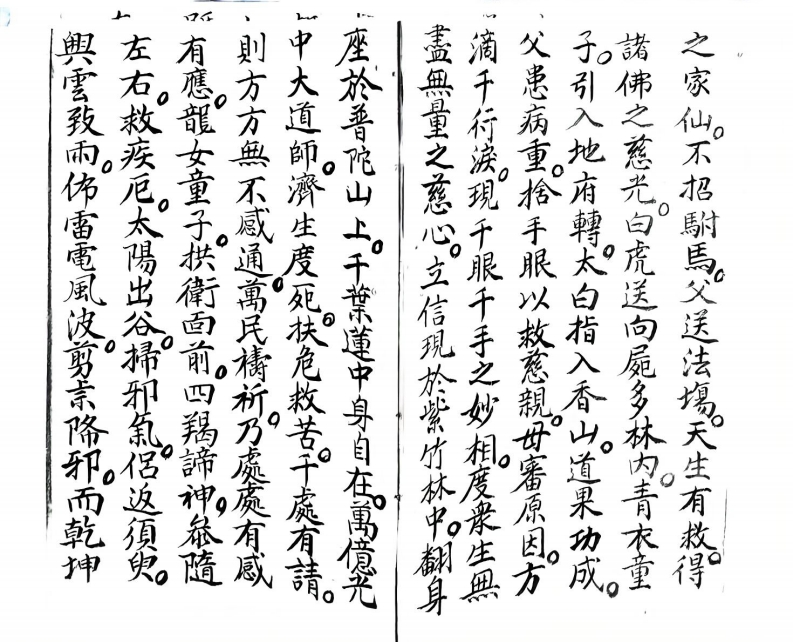 之家仙。不招駙馬。父送法場。天生有救得
諸佛之慈光。白虎送向屍多林內。青衣童
子。引入地府轉。太白指入香山。道果功成。
父患病重。捨手眼以救慈親。毋審原因。方
滴千行淚。現千眼千手之妙相。度衆生無
盡無量之慈心。立信現於紫竹林中。翻身
座於普陀山上。千葉蓮中身自在。萬億光
中大道師。濟生度死。扶危救苦。千處有請。
則方方無不感通。萬民禱祈。乃處處有感
有應。龍女童子。拱衛面前。四羯諦神。叅隨
左右。救疾厄。太陽出谷。掃邪氣。侶返須臾。
興雲致雨。佈雷電風波。剪祟降邪。而乾坤